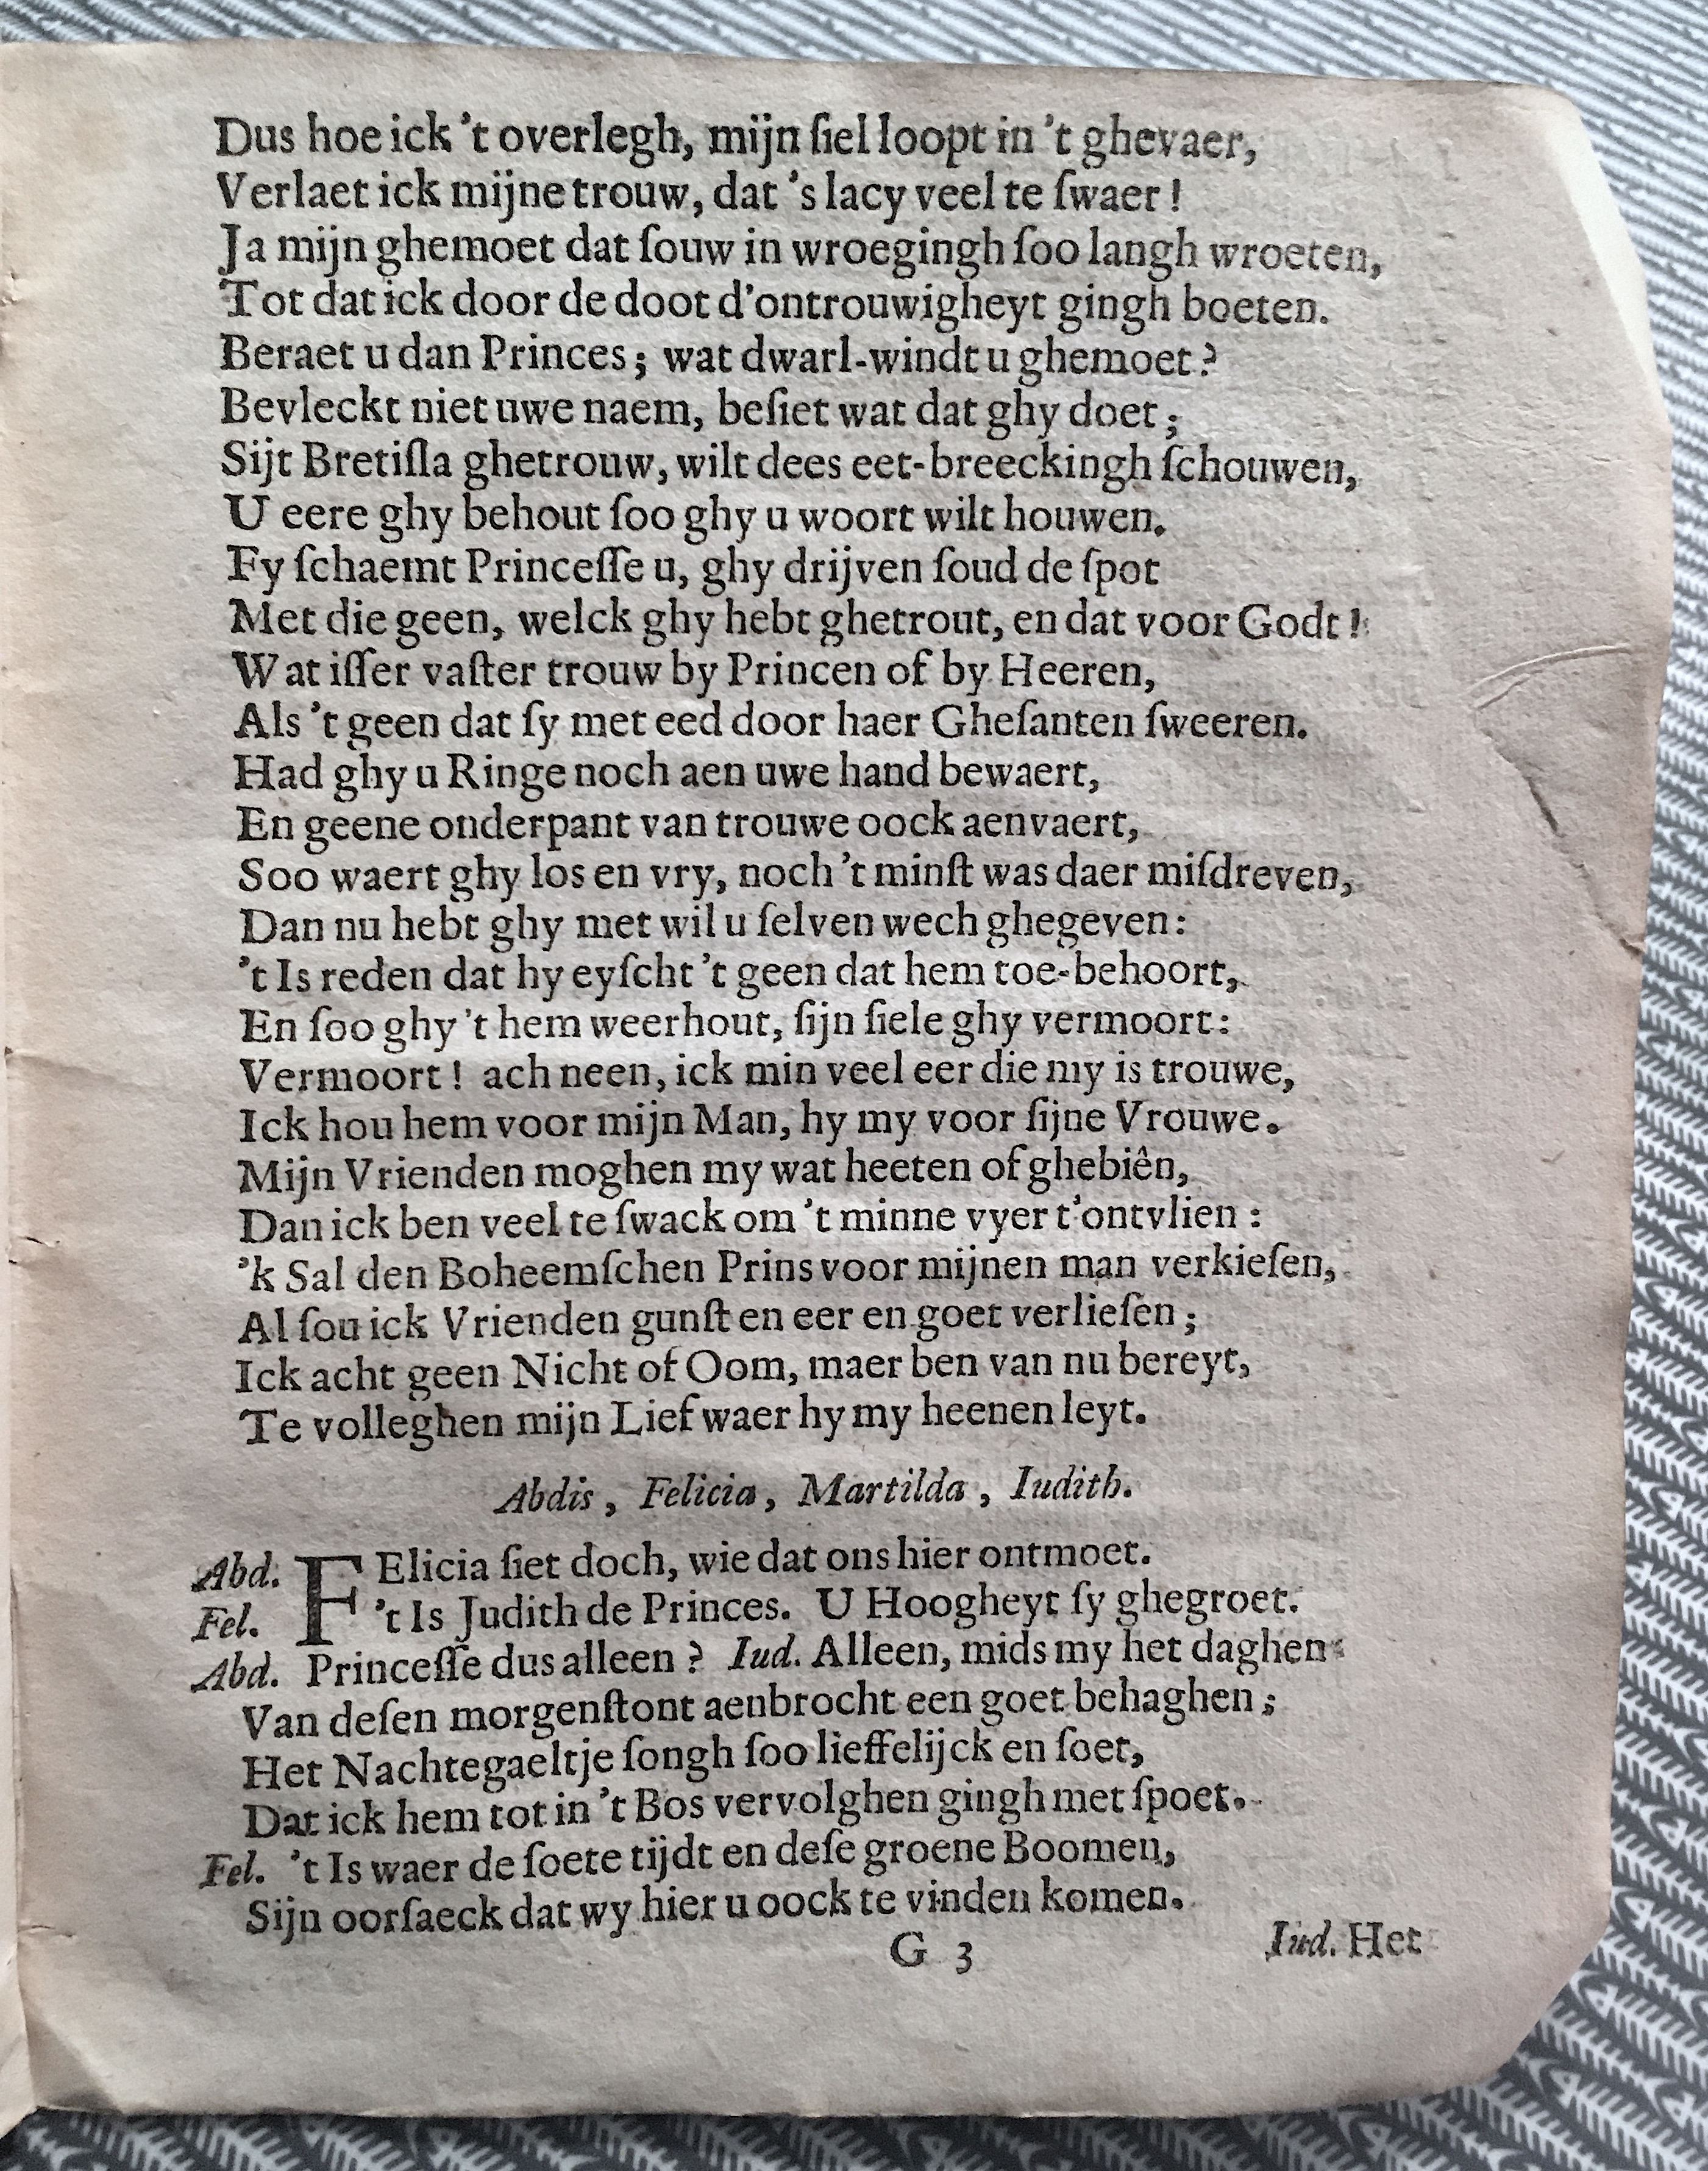 Dus hoe ick 't overlegh, mijn ſiel loopt in 't ghevaer,
Verlaet ick mijne trouw, dat 's lacy veel te ſwaer!
Ja mijn ghemoet dat ſouw in wroegingh ſoo langh wroeten,
Tot dat ick door de doot d'ontrouwigheyt gingh boeten.
Beraet u dan Princes; wat dwarl-windt u ghemoet?
Bevleckt niet uwe naem, beſiet wat dat ghy doet;
Sijt Bretiſla ghetrouw, wilt dees eet-breeckingh ſchouwen,
U eere ghy behout ſoo ghy u woort wilt houwen.
Fy ſchaemt Princeſſe u, ghy drijven ſoud de ſpot
Met die geen, welck ghy hebt ghetrout, en dat voor Godt!
Wat iſſer vaſter trouw by Princen of by Heeren,
Als 't geen dat ſy met eed door haer Gheſanten ſweeren.
Had ghy u Ringe noch aen uwe hand bewaert,
En geene onderpant van trouwe oock aenvaert,
Soo waert ghy los en vry, noch 't minſt was daer miſdreven,
Dan nu hebt ghy met wil u ſelven wech ghegeven:
't Is reden dat hy eyſcht 't geen dat hem toe-behoort,
En ſoo ghy 't hem weerhout, ſijn ſiele ghy vermoort:
Vermoort! ach neen, ick min veel eer die my is trouwe,
Ick hou hem voor mijn Man, hy my voor ſijne Vrouwe.
Mijn Vrienden moghen my wat heeten of ghebiên,
Dan ick ben veel te ſwack om 't minne vyer t'ontvlien:
'k Sal den Boheemſchen Prins voor mijnen man verkieſen,
Al ſou ick Vrienden gunſt en eer en goet verlieſen;
Ick acht geen Nicht of Oom, maer ben van nu bereyt,
Te volleghen mijn Lief waer hy my heenen leyt.
Abdis, Felicia, Martilda, Iudith.
Abd. FElicia ſiet doch, wie dat ons hier ontmoet.
Fel. 't Is Judith de Princes. U Hoogheyt ſy ghegroet.
Abd. Princeſſe dus alleen? Iud. Alleen, mids my het daghen
Van deſen morgenſtont aenbrocht een goet behaghen;
Het Nachtegaeltje ſongh ſoo lieffelijck en ſoet,
Dat ick hem tot in 't Bos vervolghen gingh met ſpoet.
Fel. 't Is waer de ſoete tijdt en deſe groene Boomen,
Sijn oorſaeck dat wy hier u oock te vinden komen.
G 3 Iud. Het